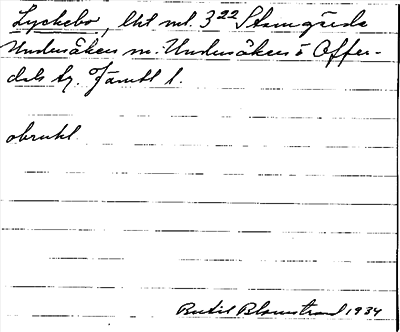 Lyckebo, lht nr. 3²² Stamgärde
Undersåkers sn. Undersåkers o Offer-
dals tg. Jämtl l.
obrukl
Bertil Blomstrand 1934